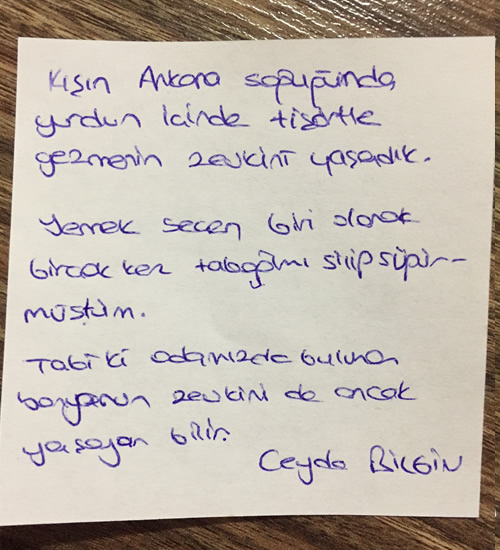 Kışın Ankara soğuğunda,
yurdun içinde tişörtle
gezmenin zevkini yaşadık.
Yemek seçen biri olarak
birçok kez tabağımı silip süpür-
müştüm.
Tabi ki odamızda bulunan
banyonun zevkini de ancak
yaşayan bilir.
Ceyda BİLGİN